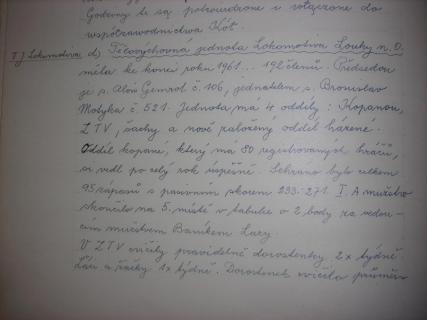 Godziny te są potwierdzone i włączone do
współzawodnictwa Kół.
TJ Lokomotiva d) Tělovýchovná jednota Lokomotiva Louky n. O.
měla ke konci roku 1961 ... 192 členů. Předsedou
je s. Alois Gemrot č. 106, jednatelem s. Bronislav
Motyka č. 521. Jednota má 4 oddíly: Kopanou,
ZTV, šachy a nově založený oddíl házené.
Oddíl kopané, který má 80 registrovaných hráčů,
si vedl po celý rok úspěšně. Sehráno bylo celkem
95 zápasů s pasivním skorem 233:271. I. A mužstvo
skončilo na 5. místě v tabulce o 2 body za vedou-
cím mužstvem Baníkem Lazy.
V ZTV cvičily pravidelně dorostenky 2x týdně.
žáci a žačky 1x týdně. Dorostenek cvičilo průměr